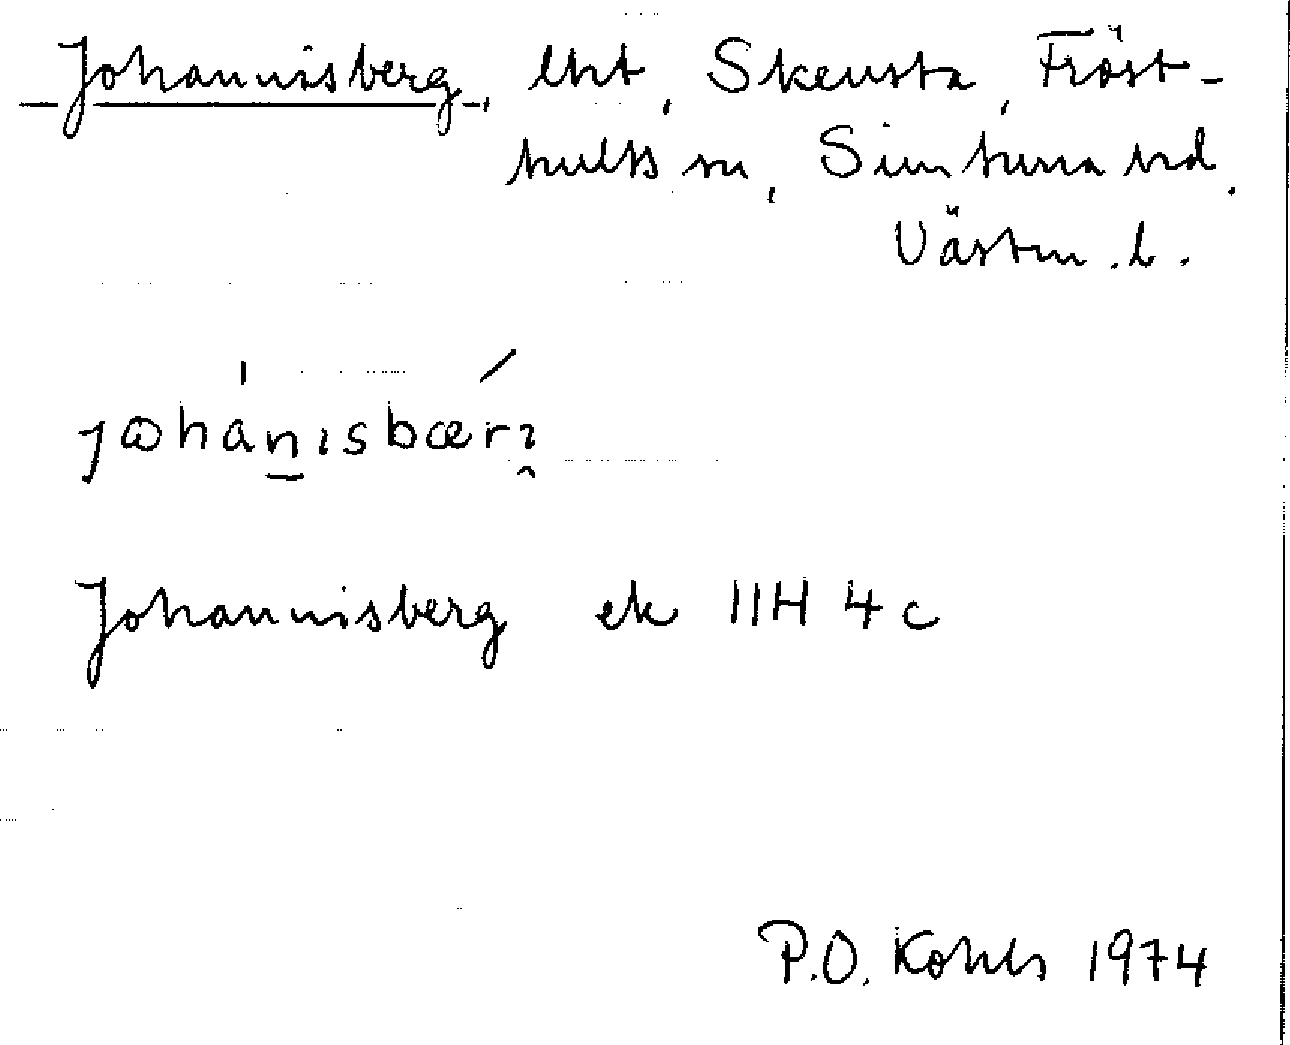 Johannisberg, lht, Skensta, Fröst-
hults sn, Simtuna hd.
Västm. l.
Johannisberg ek 11H 4c
P.O. Kohls 1974